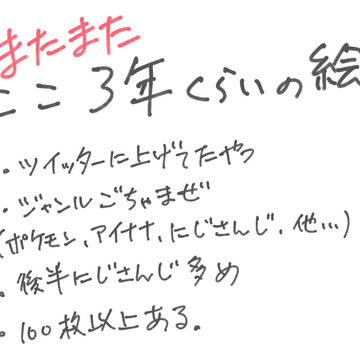 またまた
ここ3年くらいの絵
・ツイッターに上げてたやつ
・ジャンルごちゃまぜ
(ポケモン、アイナナ、にじさんじ、他…)
・後半にじさんじ多め
・100枚以上ある。